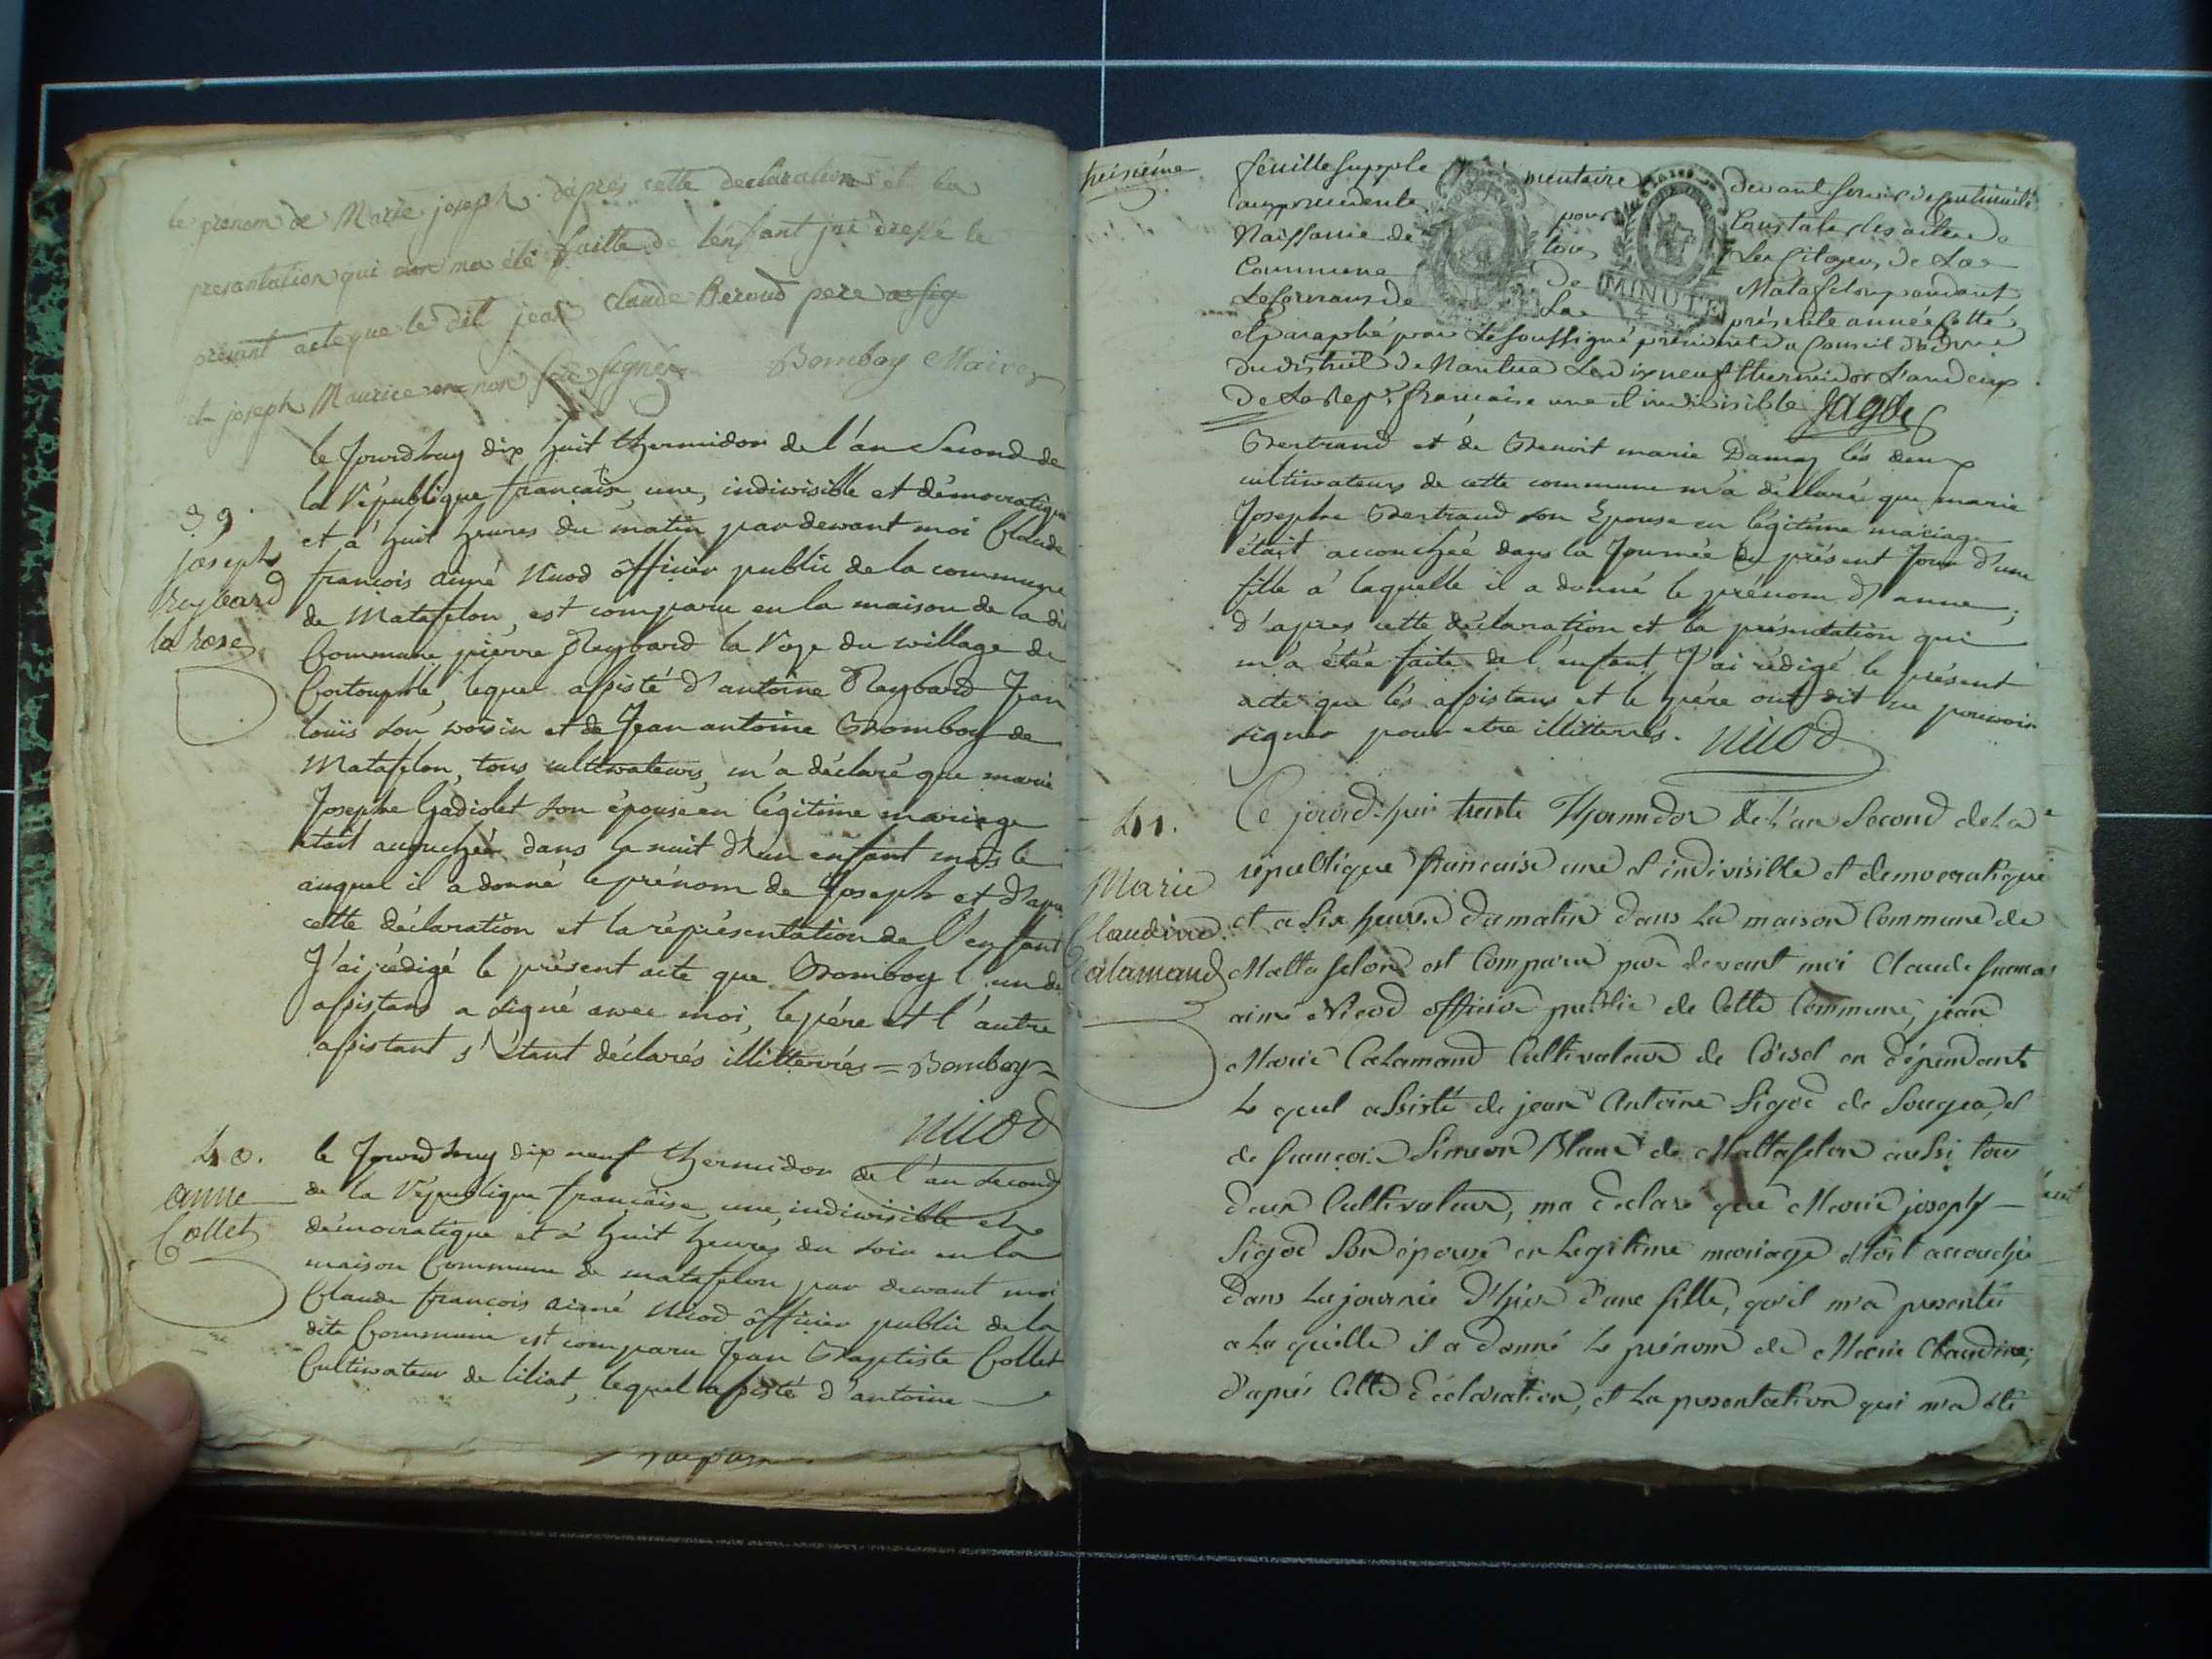 le prenom de Marie joseph d'aprés cette declaration et la
presantation qui non ma été faitte de lenfant jai dressé le
présant acte que le dit jean claude Beroud pere
et joseph Maurice non seu signér Bomboy Maire
39.
joseph
Reybard
la rose
le Jourdhuy dix huit thermidor de l'an Second de
la République française, une, indiwisible et démocratique
et à huit heures du matin pardewant moi Claude
françois aimé Nicod öfficier public de la commune
de Matafelon, est comparu en la maison de la dt
Commune pierre Reybard la Rose du willage de
lequel assisté d'antoine Reybard Jean
louis son woisin et de Jean antoine Bomboy de
Matafelon, tous cultiwateurs, m'a déclaré que marie
Josephe Gadiolet son épouse en légitime mariage
était accouchée dans la nuit d'un enfant mâle
auquel il a donné le prénom de Joseph et d'après
cette déclaration et la réprésentation de l'enfant
J'ai rédigé le présent acte que Bomboy l'un des
assistans a signé awec moi, le père et l'autre
assistant s'étant déclarés illitterrés = Bomboy
Nicod
40.
anne
Collet
le Jourdhuy dix neuf thermidor de l'an second
de la République française, une, indiwisible et
démocratique et à huit heures du soir en la
maison Commune de matafelon par dewant moi
Claude françois aimé Nicod öfficier public de la
dite Commune est comparu Jean Baptiste Collet
Cultiwateur de liliat, lequel assisté d'antoine
treisième feuille supplémentaire devant servir
pour Constater les actes de
Naissance de tous Les Citoyens de La
Commune de Matafelon pendant
Le Courant de La présente année Cotté
MINUTE
4 S
et paraphé par Le soussigné président du Conseil
du district de Nantua Le dix neuf thermidor L'an deux
de La Rep.e française une et indivisible
Bertrand et de Benoit marie Damey lés deux
cultiwateurs de cette commune m'a déclaré que marie
Josephe Bertrand son Epouse en légitime mariage
était accouchée dans la Journée du présent Jour d'une
fille à laquelle il a donné le prénom d'anne;
d'apres cette déclaration et la présentation qui
m'a étée faite de l'enfant J'ai rédigé le présent
acte que lés assistans et le père ont dit ne pouwoir
signer pour etre illitterrés. Nicod
41.
Marie
Claudine
Calamand
Ce jourd'hui trente Thermidor de l'an Second de La
république française une et indivisible et democratique
et a six heures du matin dans La maison Commune de
Mattafelon est Comparu par devant moi Claude francois
aimé Nicod officier public de Cette Commune, jean
Marie Calamand Cultivateur de Coisel en dépendant
Le quel assisté de jean Antoine Sigod de Sougea, et
de françois Simeon Blanc de Mattafelon aussi tous
deux Cultivateurs, ma declaré que Marie joseph
Sigod Son épouse en Legitime mariage étoit accouchée
dans La journée d'hier d'une fille, qu'il m'a presentée
a La quelle il a donné Le prénom de Marie Claudine;
d'aprés Cette déclaration, et La presentation qui m'a été